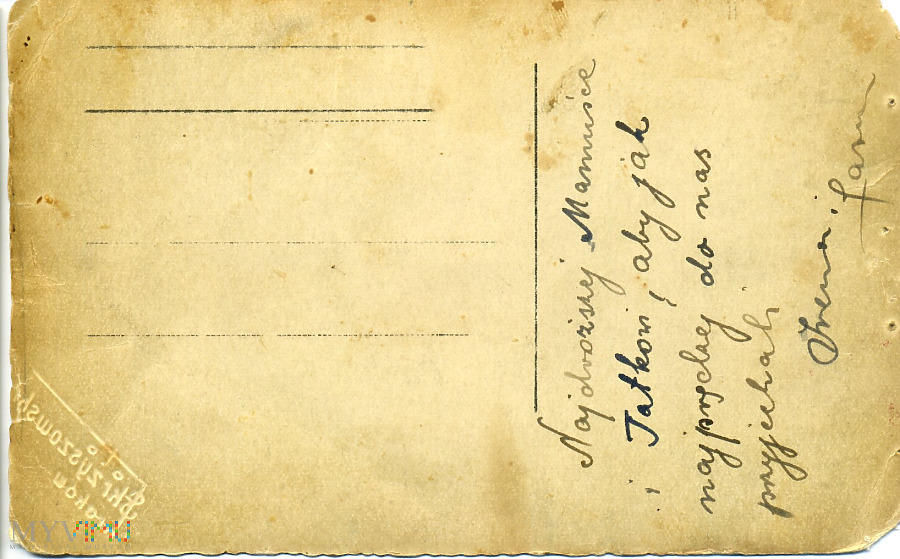 Najdroższej Mamusice
i Tatkowi, aby jak
najprędzej do nas
przyjechali
Irena i Jarun
Foto
Skrzyszowski
Kraków
MYVIMU